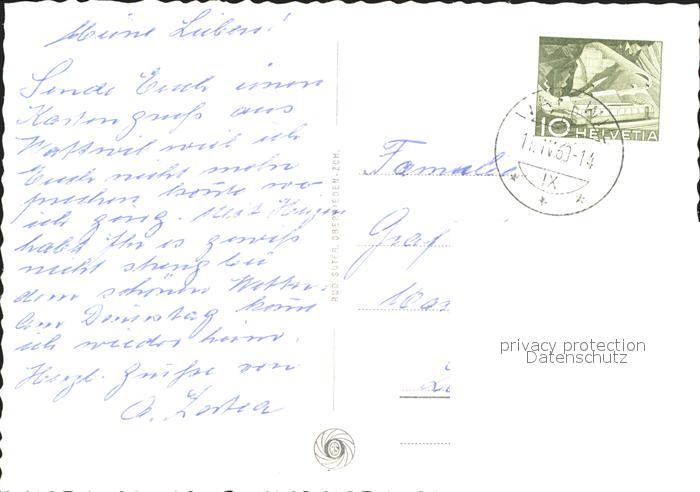 Meine Lieben!
Sende Euch einen
Kartengruß aus
Wattwil weil ich
Euch nicht mehr
sprechen konnte wo
ich ging. Mit Heizen
habt Ihr es gewiß
nicht streng bei
dem schönen Wetter.
Am Dienstag komm
ich wieder heim.
Herzl. Grüße von
RUD. SUTER, OBERRIEDEN-ZCH.
10 HELVETIA
IX
Graf
privacy protection
Datenschutz